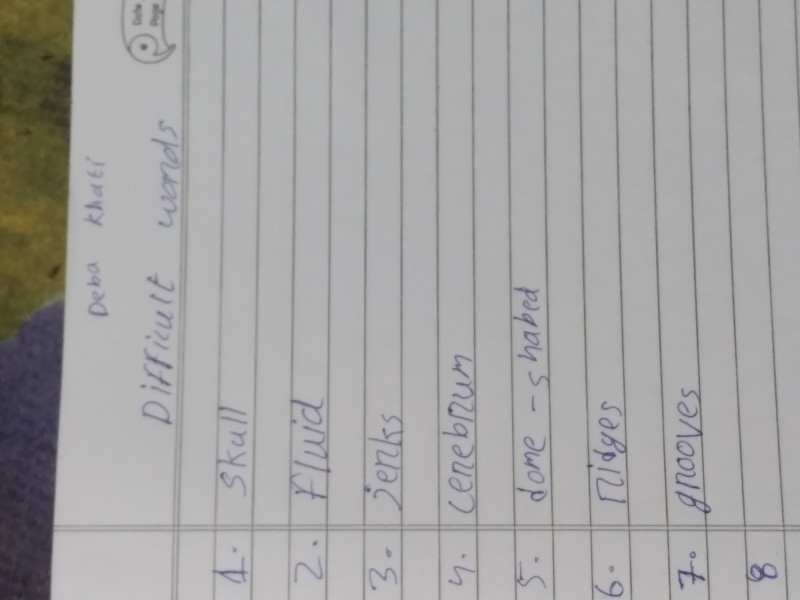 Date
Page
Deba Khati
Difficult words
1. Skull
2. fluid
3. jerks
4. cerebrum
5. dome-shabed
6. ridges
7. grooves
8